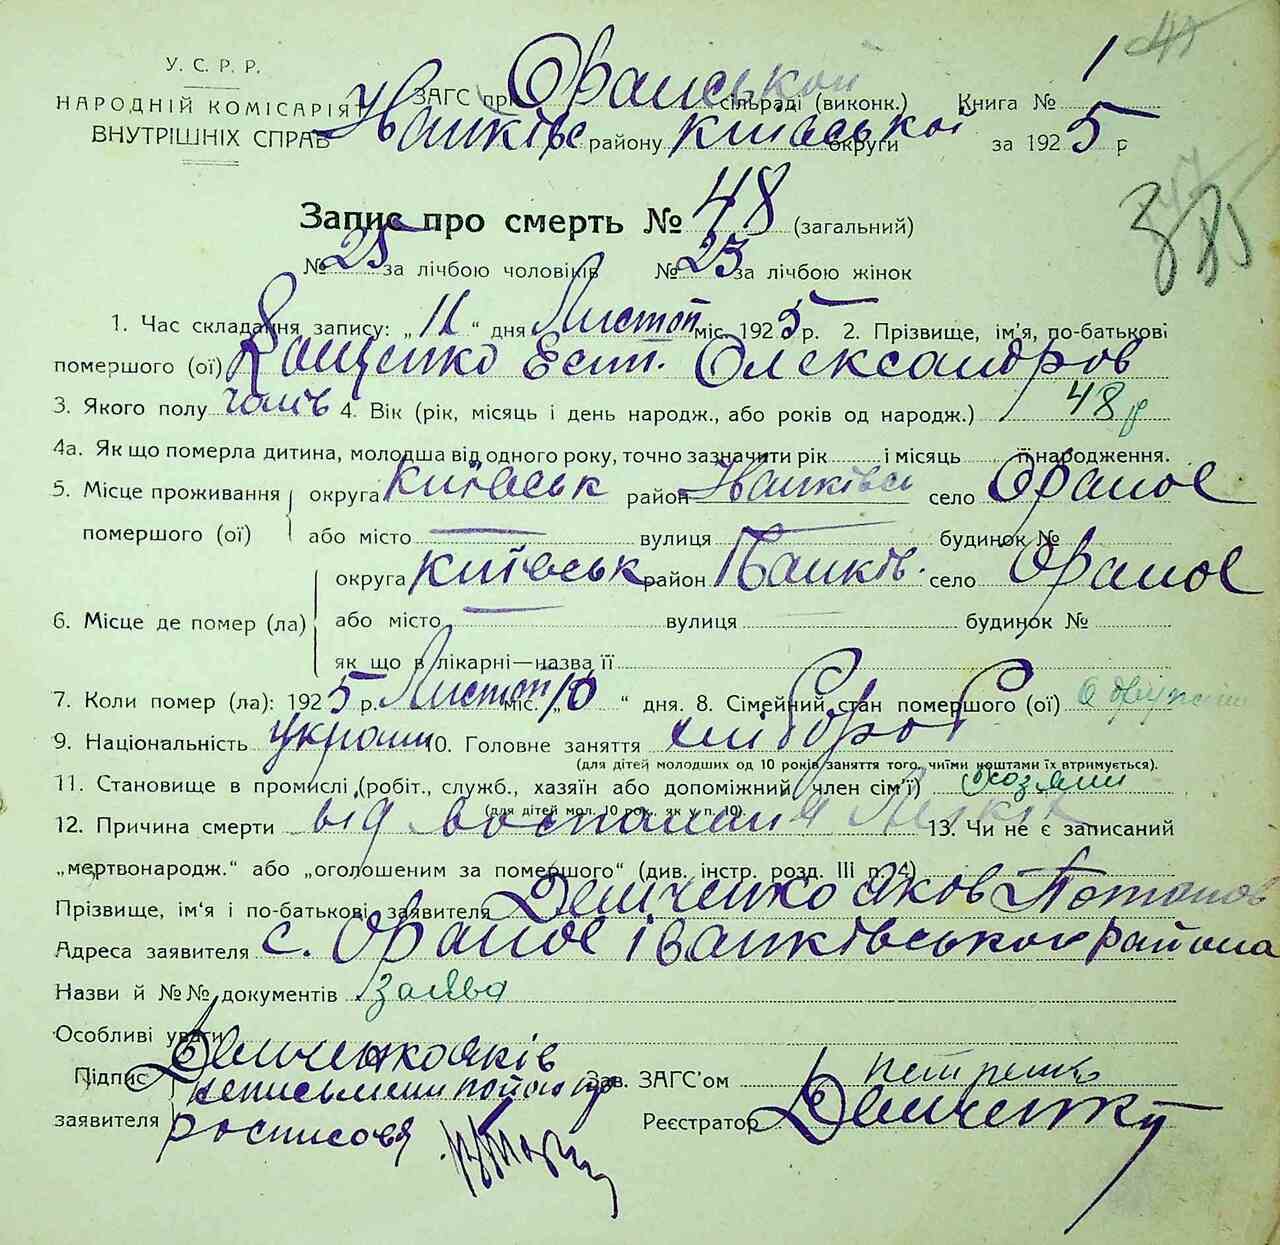 У. С. Р. Р.
НАРОДНІЙ КОМІСАРІЯТ
ВНУТРІШНІХ СПРАВ
ЗАГС при Оранській сільраді (виконк.) Книга № 1
Іванківс району Київської округи за 1925 р
Запис про смерть № 48 (загальний)
№ 25 за лічбою чоловіків № 23 за лічбою жінок
1. Час складання запису: „ 11 “ дня Листоп міс. 1925 р. 2. Прізвище, ім'я, по-батькові
помершого (ої) Кащенко Олександров
3. Якого полу 4. Вік (рік, місяць і день народж., або років од народж.) 48 р
4а. Як що померла дитина, молодша від одного року, точно зазначити рік і місяць її народження.
5. Місце проживання округа Київськ район Іванківсь селоОраное
помершого (ої) або місто вулиця будинок №
округа Київськ район Іванків. селоОраное
6. Місце де помер (ла) або місто вулиця будинок №
як що в лікарні—назва її
7. Коли помер (ла): 1925 р. Листоп міс. „ 10 “ дня. 8. Сімейний стан помершого (ої)
9. Національність україн 10. Головне заняття хлібороб
(для дітей молодших од 10 років заняття того, чиїми коштами їх втримується).
11. Становище в промислі (робіт., служб., хазяїн або допоміжний член сім'ї)
(для дітей мол. 10 рок. як у п. 10)
12. Причина смерти від воспаления 13. Чи не є записаний
„мертвонародж.“ або „оголошеним за помершого“ (див. інстр. розд. III п. 4)
Прізвище, ім'я і по-батькові заявителя Демченко Яков Потапов
Адреса заявителя с. Ораное Іванківського района
Назви й №№ документів Заява
Особливі уваги
Демченко Яків
Підпис неписьмени Зав. ЗАГС'ом Петренко
заявителя росписовя Реєстратор Демченко